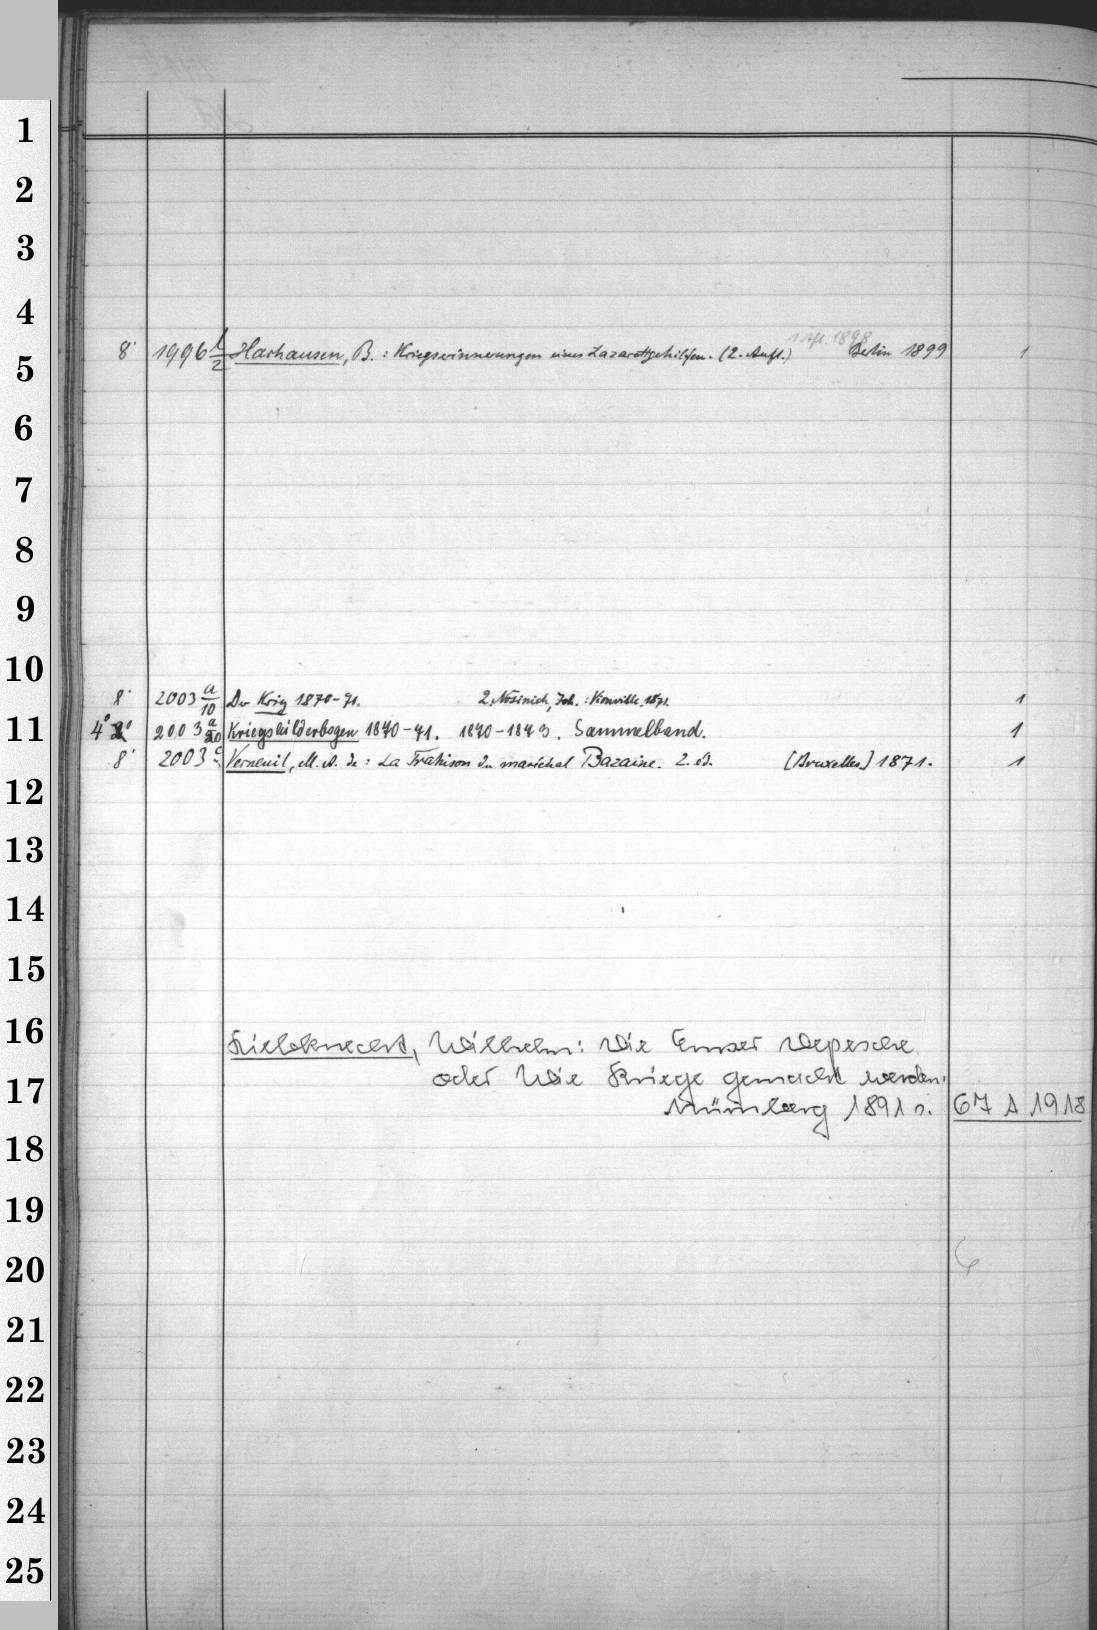 1
2
3
4
1. Afl. 1898
8° 1996 1/2 Harhausen, B.: Kriegserinnerungen eines Lazarettgehilfen. (2. Aufl.) Berlin 1899 1
5
6
7
8
9
10
8° 2003 a/10 Der Krieg 1870-71. 2. Nosinich, Joh.: Vionville. 1871. 1
11
4° 2° 2003 a/20 Kriegsbilderbogen 1870-71. 1870-1873. Sammelband. 1
8° 2003 c Verneuil, M. A. de: La Trahison du maréchal Bazaine. 2. éd. [Bruxelles] 1871. 1
12
13
14
15
16
Liebknecht, Wilhelm: Die Emser Depesche
oder Wie Kriege gemacht werden.
17
Nürnberg 1891. 67 A 1918
18
19
20
21
22
23
24
25